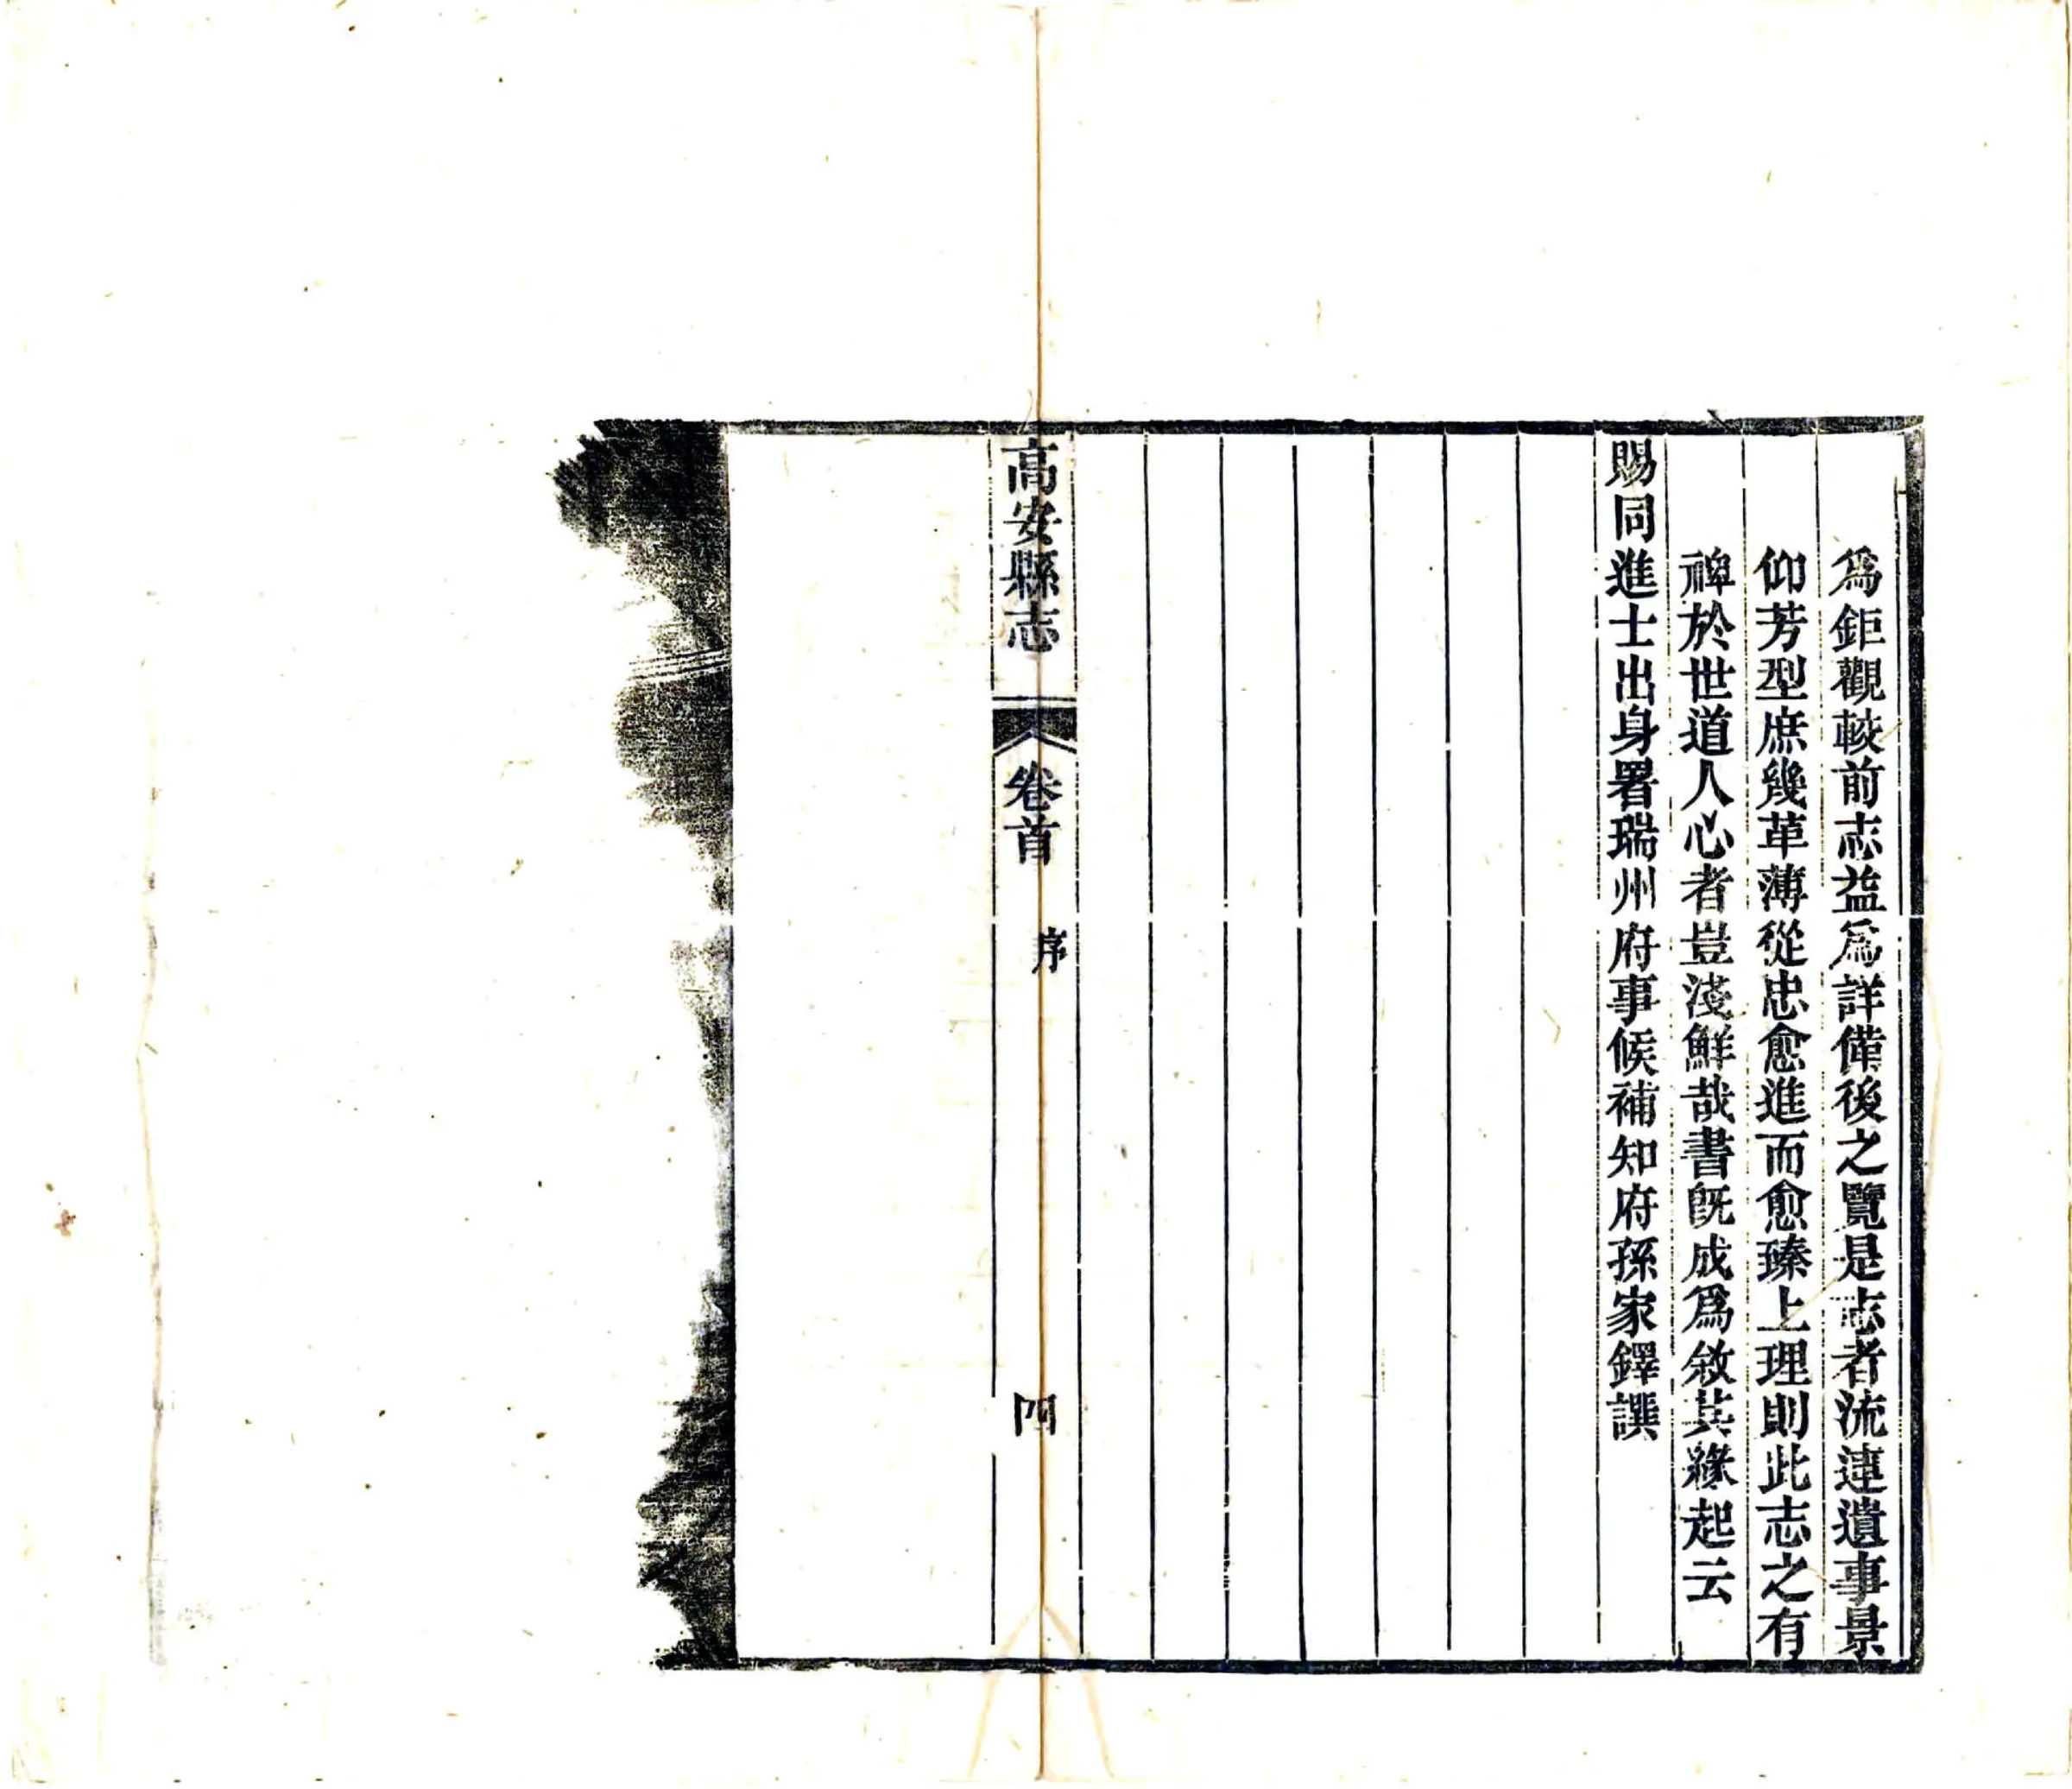 爲鉅觀較前志益爲詳備後之覽是志者流連遺事景
仰芳型庶幾革薄從忠愈進而愈臻上理則此志之有
裨於世道人心者豈淺鮮哉書旣成爲敘其緣起云
賜同進士出身署瑞州府事候補知府孫家鐸譔
高安縣志 卷首 序 四